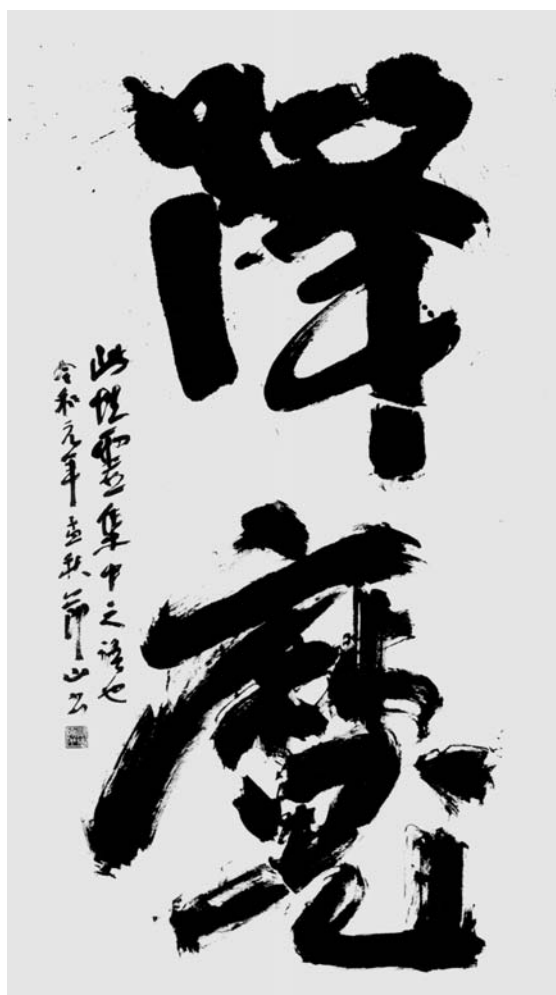 降魔
此性霊集中之語也
令和元年孟秋節山書